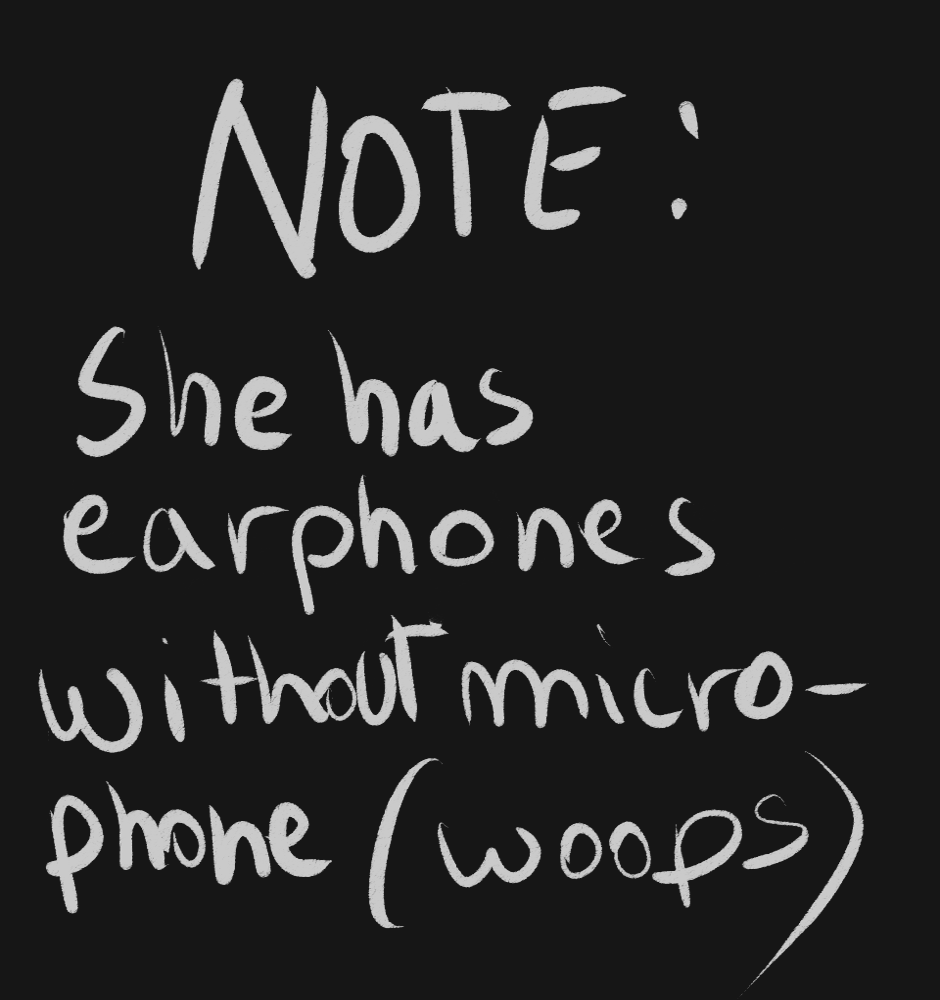 NOTE:
She has
earphones
without micro-
phone (woops)